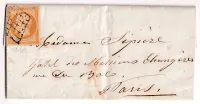 Madame Sipière
hotel des Missions Etrangères
rue du Bac.
Paris.